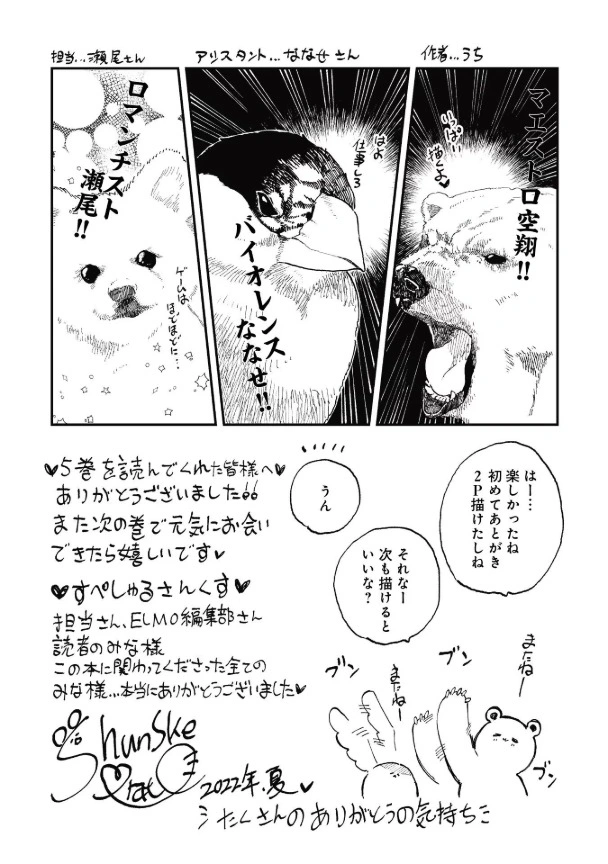 作者…うち
アシスタント…ななせさん
担当…瀬尾さん
マエストロ空翔!!
いっぱい
描くよ♥
バイオレンス
ななせ!!
はよ
仕事しろ
ロマンチスト
瀬尾!!
ゲームは
ほどほどに…
はー…
楽しかったね
初めてあとがき
2P描けたしね
うん
それなー
次も描けると
いいな?
またねー
またねー
ブン
ブン
ブン
♥5巻を読んでくれた皆様へ♥
ありがとうございました!!
また次の巻で元気にお会い
できたら嬉しいです♥
♥すぺしゃるさんくす♥
担当さん、ELMO編集部さん
読者のみな様
この本に関わってくださった全ての
みな様…本当にありがとうございました♥
Shunske
2022年.夏♥
たくさんのありがとうの気持ち